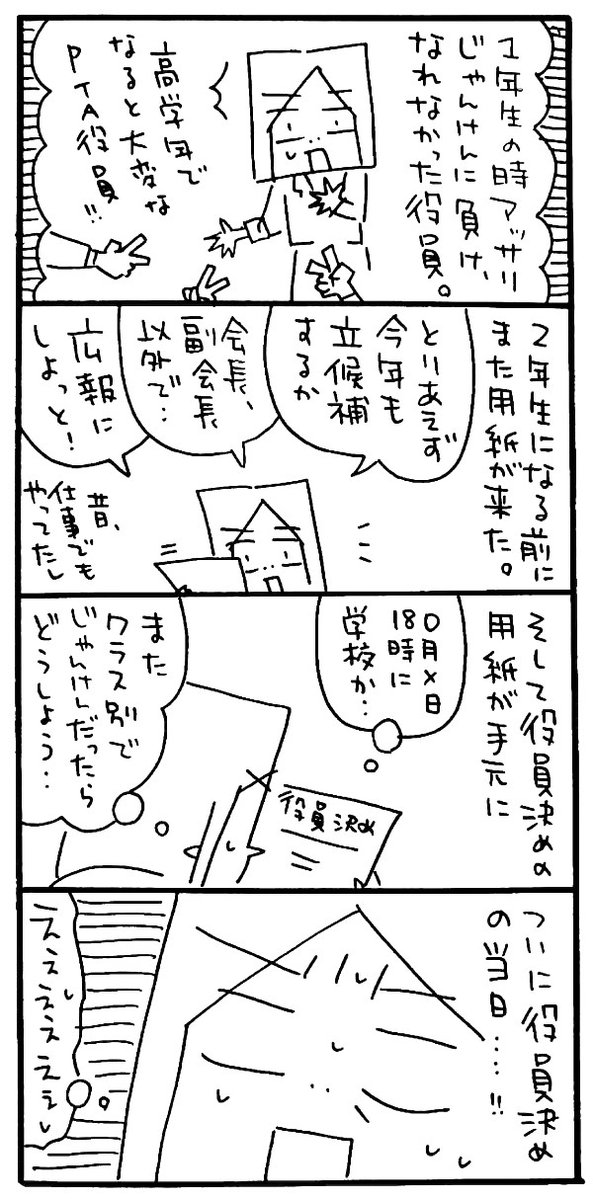 1年生の時アッサリ
じゃんけんに負け、
なれなかった役員。
高学年で
なると大変な
PTA役員!!
2年生になる前に
また用紙が来た。
とりあえず
今年も
立候補
するか
会長、
副会長
以外で…
広報に
しよっと!
昔、
仕事でも
やってたし
そして役員決めの
用紙が手元に
〇月×日
18時に
学校か…
役員決め
また
クラス別で
じゃんけんだったら
どうしよう…
ついに役員決め
の当日……!!
えぇぇぇぇ